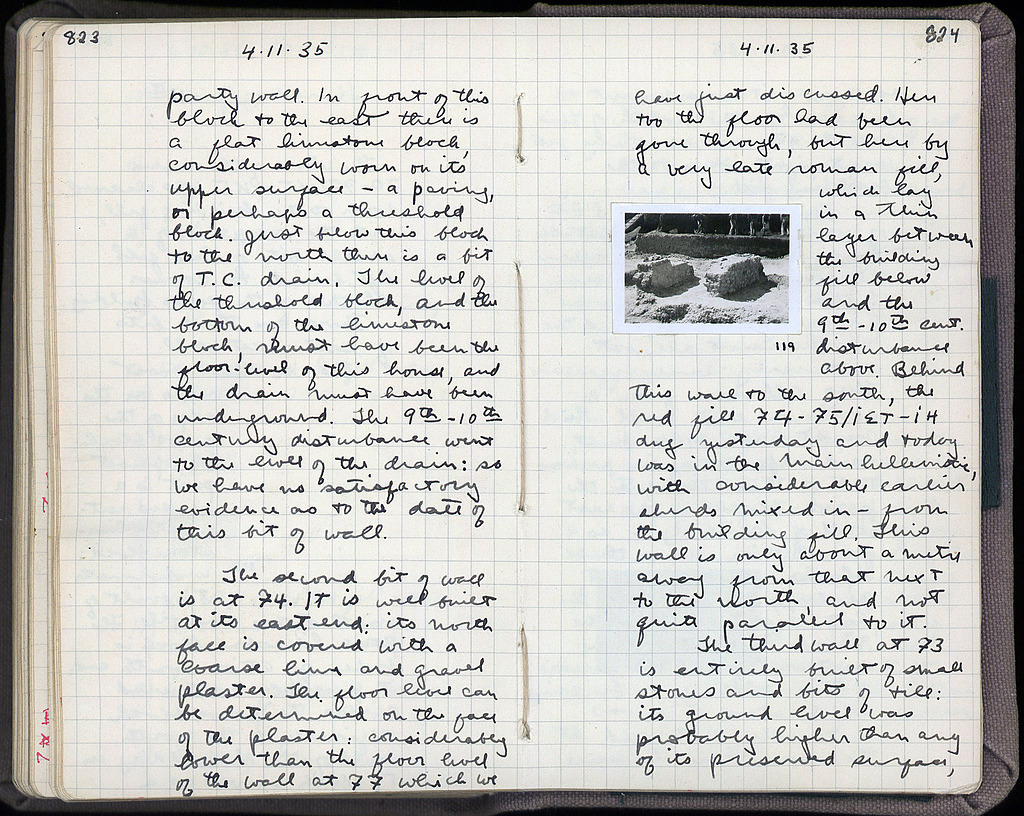 823
4·11·35
party wall. In front of this
block to the east there is
a flat limestone block,
considerably worn on its
upper surface – a paving,
or perhaps a threshold
block. Just below this block
to the north there is a bit
of T.C. drain. The level of
the threshold block, and the
bottom of the limestone
block, must have been the
floor-level of this house, and
the drain must have been
underground. The 9th-10th
century disturbance went
to the level of the drain: so
we have no satisfactory
evidence as to the date of
this bit of wall.
The second bit of wall
is at 74. It is well built
at its east end: its north
face is covered with a
coarse lime and gravel
plaster. The floor level can
be determined on the face
of the plaster: considerably
lower than the floor level
of the wall at 77 which we
824
4·11·35
have just discussed. Here
too the floor had been
gone through, but here by
a very late roman fill,
which lay
in a thin
layer between
the building
fill below
and the
9th-10th cent.
disturbance
above. Behind
119
this wall to the south, the
red fill 74-75/ΙΣΤ-ΙΗ
dug yesterday and today
was in the main hellenistic,
with considerable earlier
sherds mixed in – from
the building fill. This
wall is only about a metre
away from that next
to the north, and not
quite parallel to it.
The third wall at 73
is entirely built of small
stones and bits of tile:
its ground level was
probably higher than any
of its preserved surface,